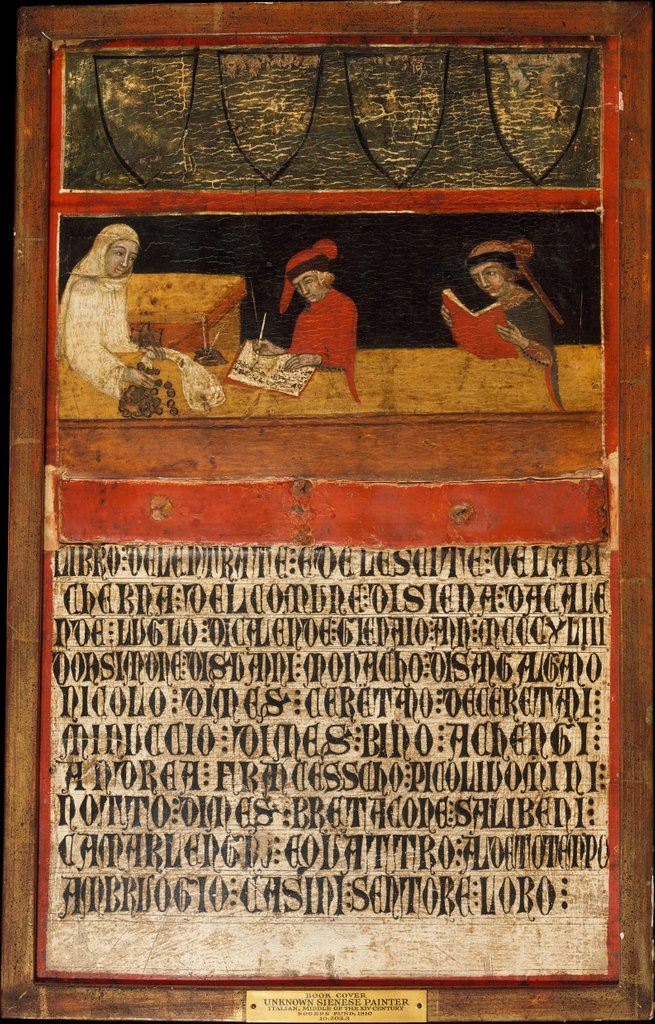 LIBRO:DELENTRATE:EDELESCITE:DELABI
CHERNA:DELCOMUNE:DISIENA:DACALE
NDE:LUGLO:DICALENDE:GIENAIO:ANN:MCCCXLIII
DONSIMONE: MONACHO:DISANGALGANO
NICOLO:DIMES:CERETANO:DECERETANI
MINUCCIO:DIMES:BINO:ACHENGI:
ANDREA:FRANCESSCHO:PICOLIUOMINI:
NOTTO:DIMES:BRETACONE:SALIBENI:
EQUATTRO:ALDETOTENPO
AMBRUOGIO:CASINI:SENTORE:LORO:
BOOK COVER
UNKNOWN SIENESE PAINTER
ITALIAN, MIDDLE OF THE XIV CENTURY
ROGERS FUND, 1910
10.203.3